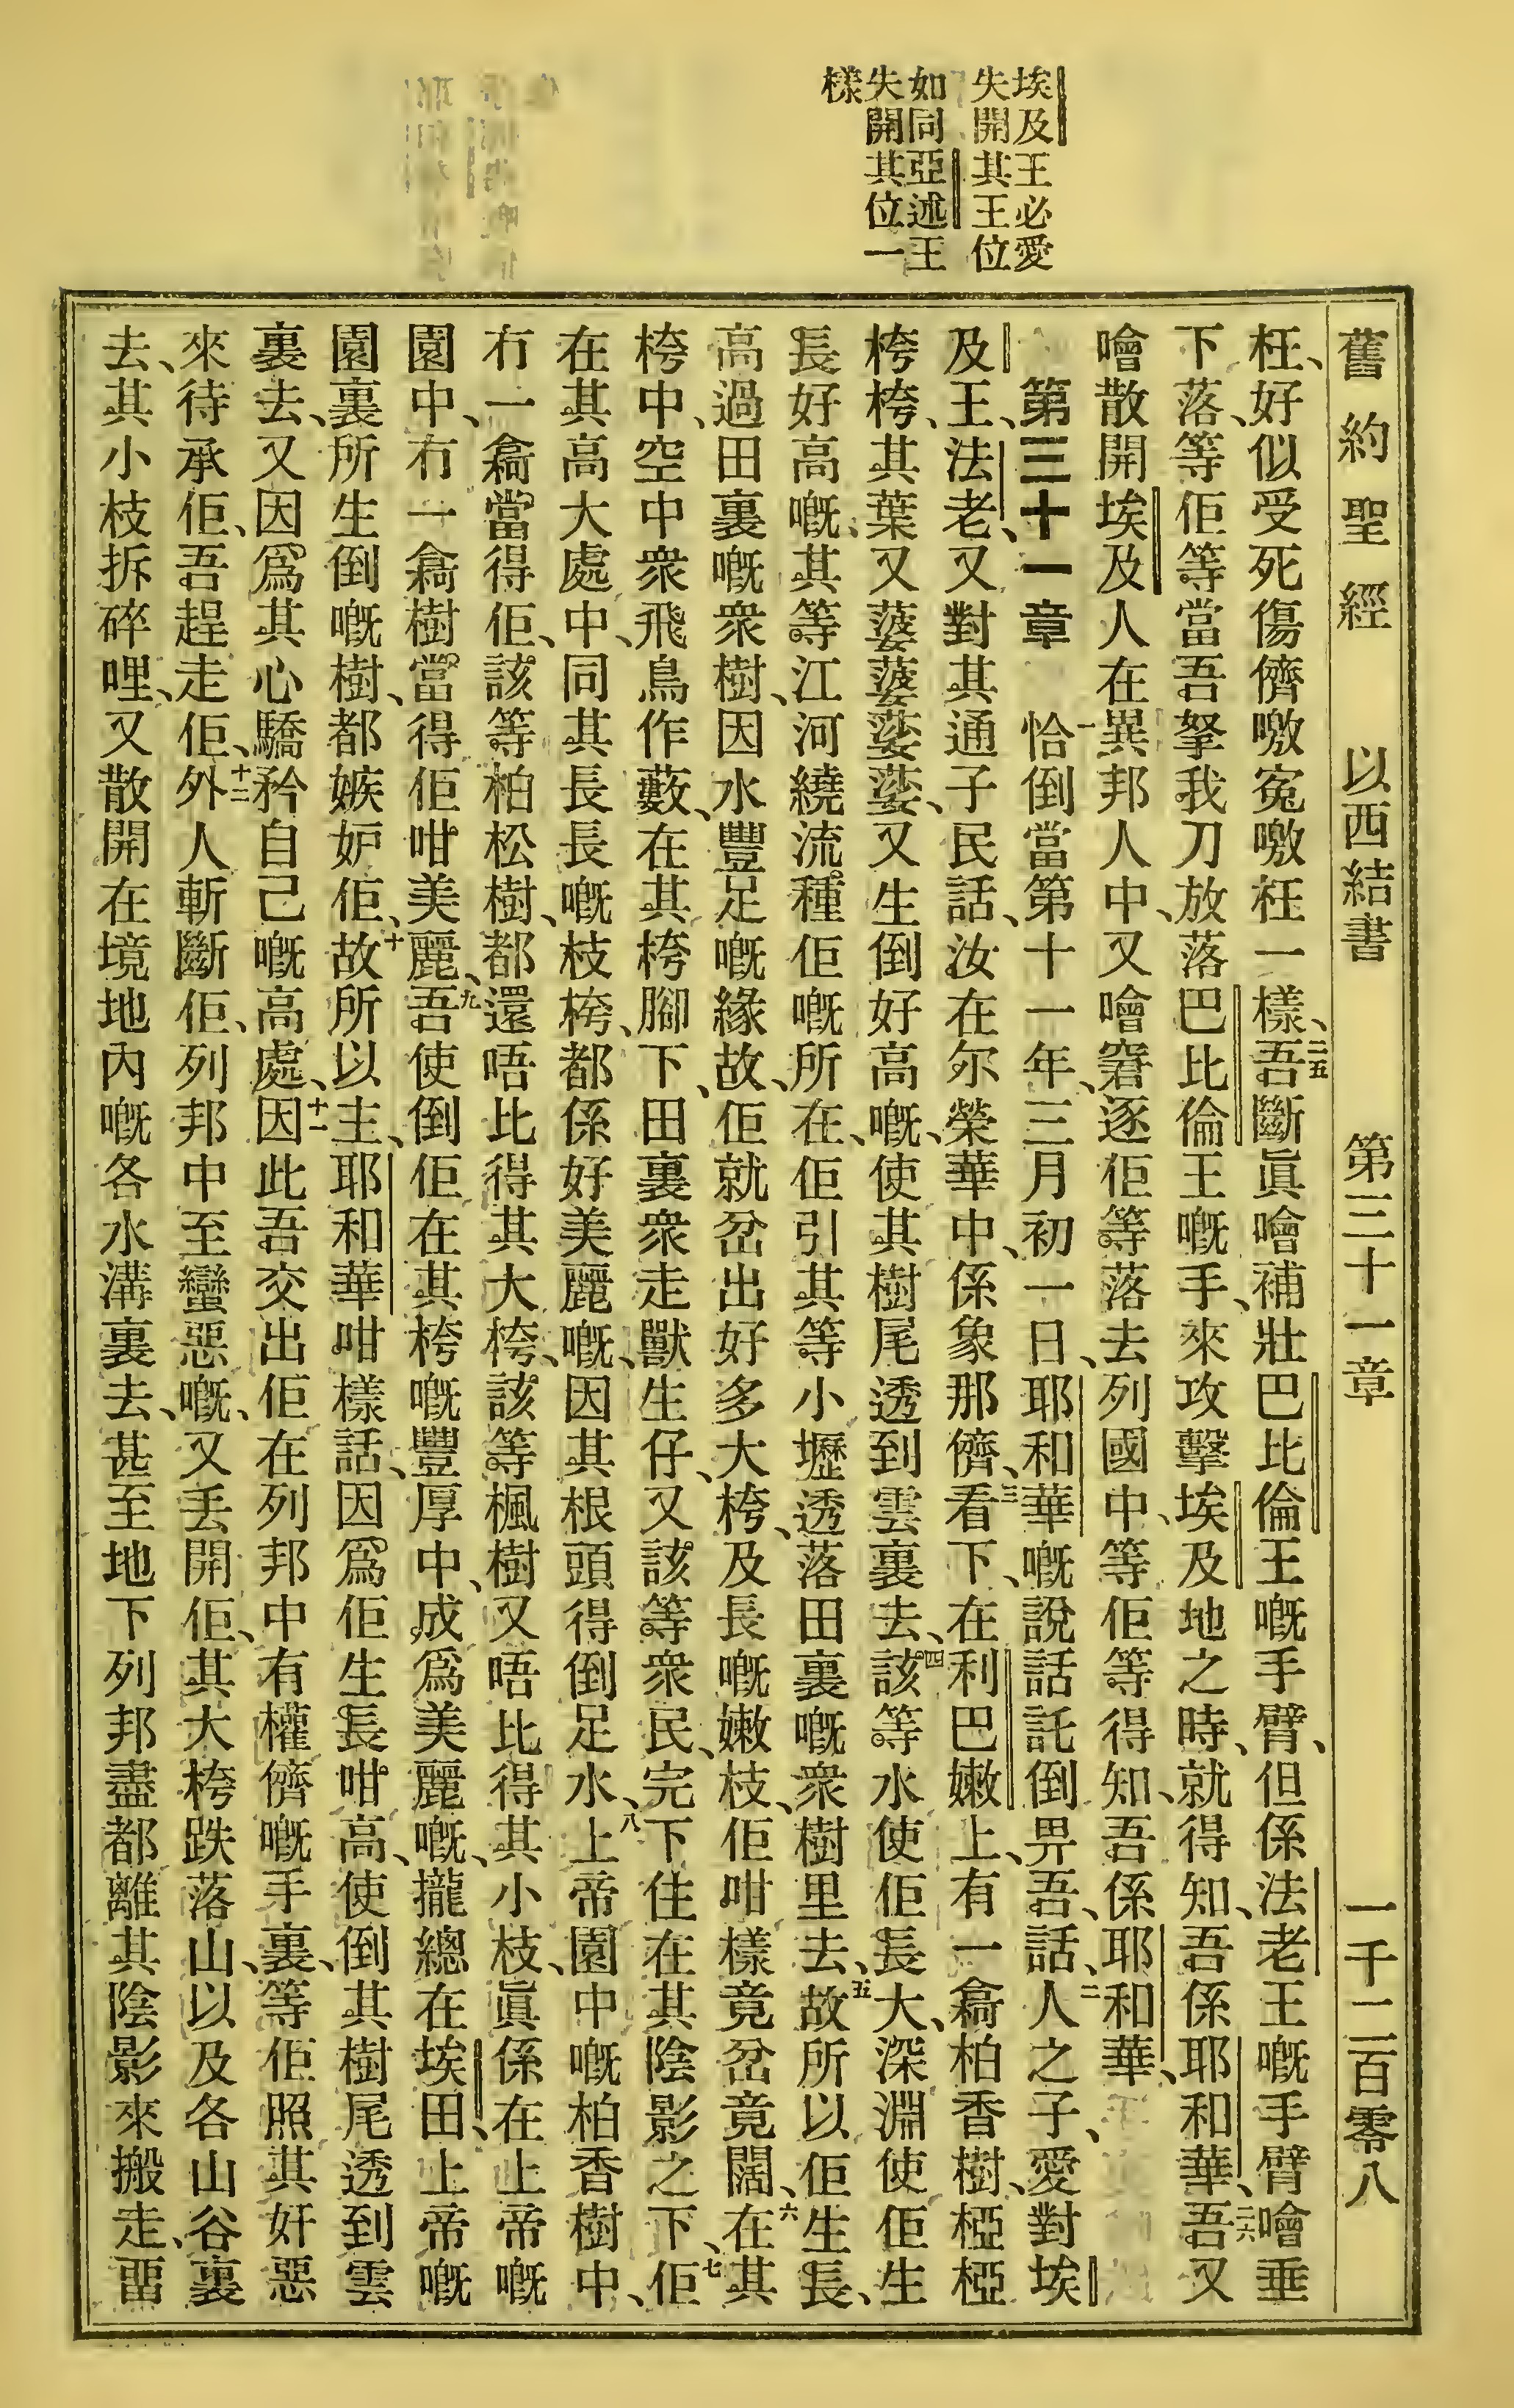 埃及王必愛
失開其王位
如同亞述王
失開其位一
樣
舊約聖經 以西結書 第三十一章 一千二百零八
枉、好似受死傷儕噭寃噭枉一樣、二五吾斷眞噲補壯巴比倫王嘅手臂、但係法老王嘅手臂噲垂
下落、等佢等當吾拏我刀放落巴比倫王嘅手、來攻擊埃及地之時、就得知、吾係耶和華、二六吾又
噲散開埃及人在異邦人中、又噲窘逐佢等落去列國中、等佢等得知、吾係耶和華、
第三十一章 一恰倒當第十一年、三月初一日、耶和華嘅說話託倒畀吾、話、二人之子、愛對埃
及王、法老、又對其通子民話、汝在尔榮華中、係象那儕、三看下、在利巴嫩上、有一樖柏香樹、椏椏
桍桍、其葉又蔢蔢蔢蔢、又生倒好高嘅、使其樹尾透到雲裏去、四該等水使佢長大、深淵使佢生
長好高嘅、其等江河繞流種佢嘅所在、佢引其等小壢透落田裏嘅衆樹里去、五故所以佢生長、
高過田裏嘅衆樹、因水豐足嘅緣故、佢就岔出好多大桍、及長嘅嫩枝、佢咁樣竟岔竟闊、六在其
桍中、空中衆飛鳥作藪、在其桍腳下、田裏衆走獸生仔、又該等衆民、完下住在其陰影之下、七佢
在其高大處中、同其長長嘅枝桍、都係好美麗嘅、因其根頭得倒足水、八上帝園中嘅柏香樹中、
冇一樖當得佢、該等柏松樹、都還唔比得其大桍、該等楓樹又唔比得其小枝、眞係在上帝嘅
園中、冇一樖樹當得佢咁美麗、九吾使倒佢在其桍嘅豐厚中、成爲美麗嘅、攏總在埃田、上帝嘅
園裏所生倒嘅樹、都嫉妒佢、十故所以主、耶和華咁樣話、因爲佢生長咁高、使倒其樹尾透到雲
裏去、又因爲其心驕矜自己嘅高處、十一因此吾交出佢在列邦中有權儕嘅手裏、等佢照其奸惡
來待承佢、吾趕走佢、十二外人斬斷佢、列邦中至蠻惡嘅、又丢開佢、其大桍跌落山、以及各山谷裏
去、其小枝拆碎哩、又散開在境地內嘅各水溝裏去、甚至地下列邦盡都離其陰影來搬走、畱